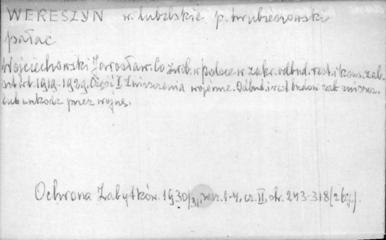 WERESZYN w. lubelskie p. hrubieszowski
pałac
Wojciechowski Jarosław. Co zrob. w Polsce w zakr. odbud. rest. i kons. zab.
arch. 1919-1929. Część I Zniszczenia wojenne. Odbud. i rest. budow. zab. zniszcz.
lub uszkodz. przez wojnę.
Ochrona Zabytków. 1930/31, zesz. 1-4, cz. II, str. 243-318